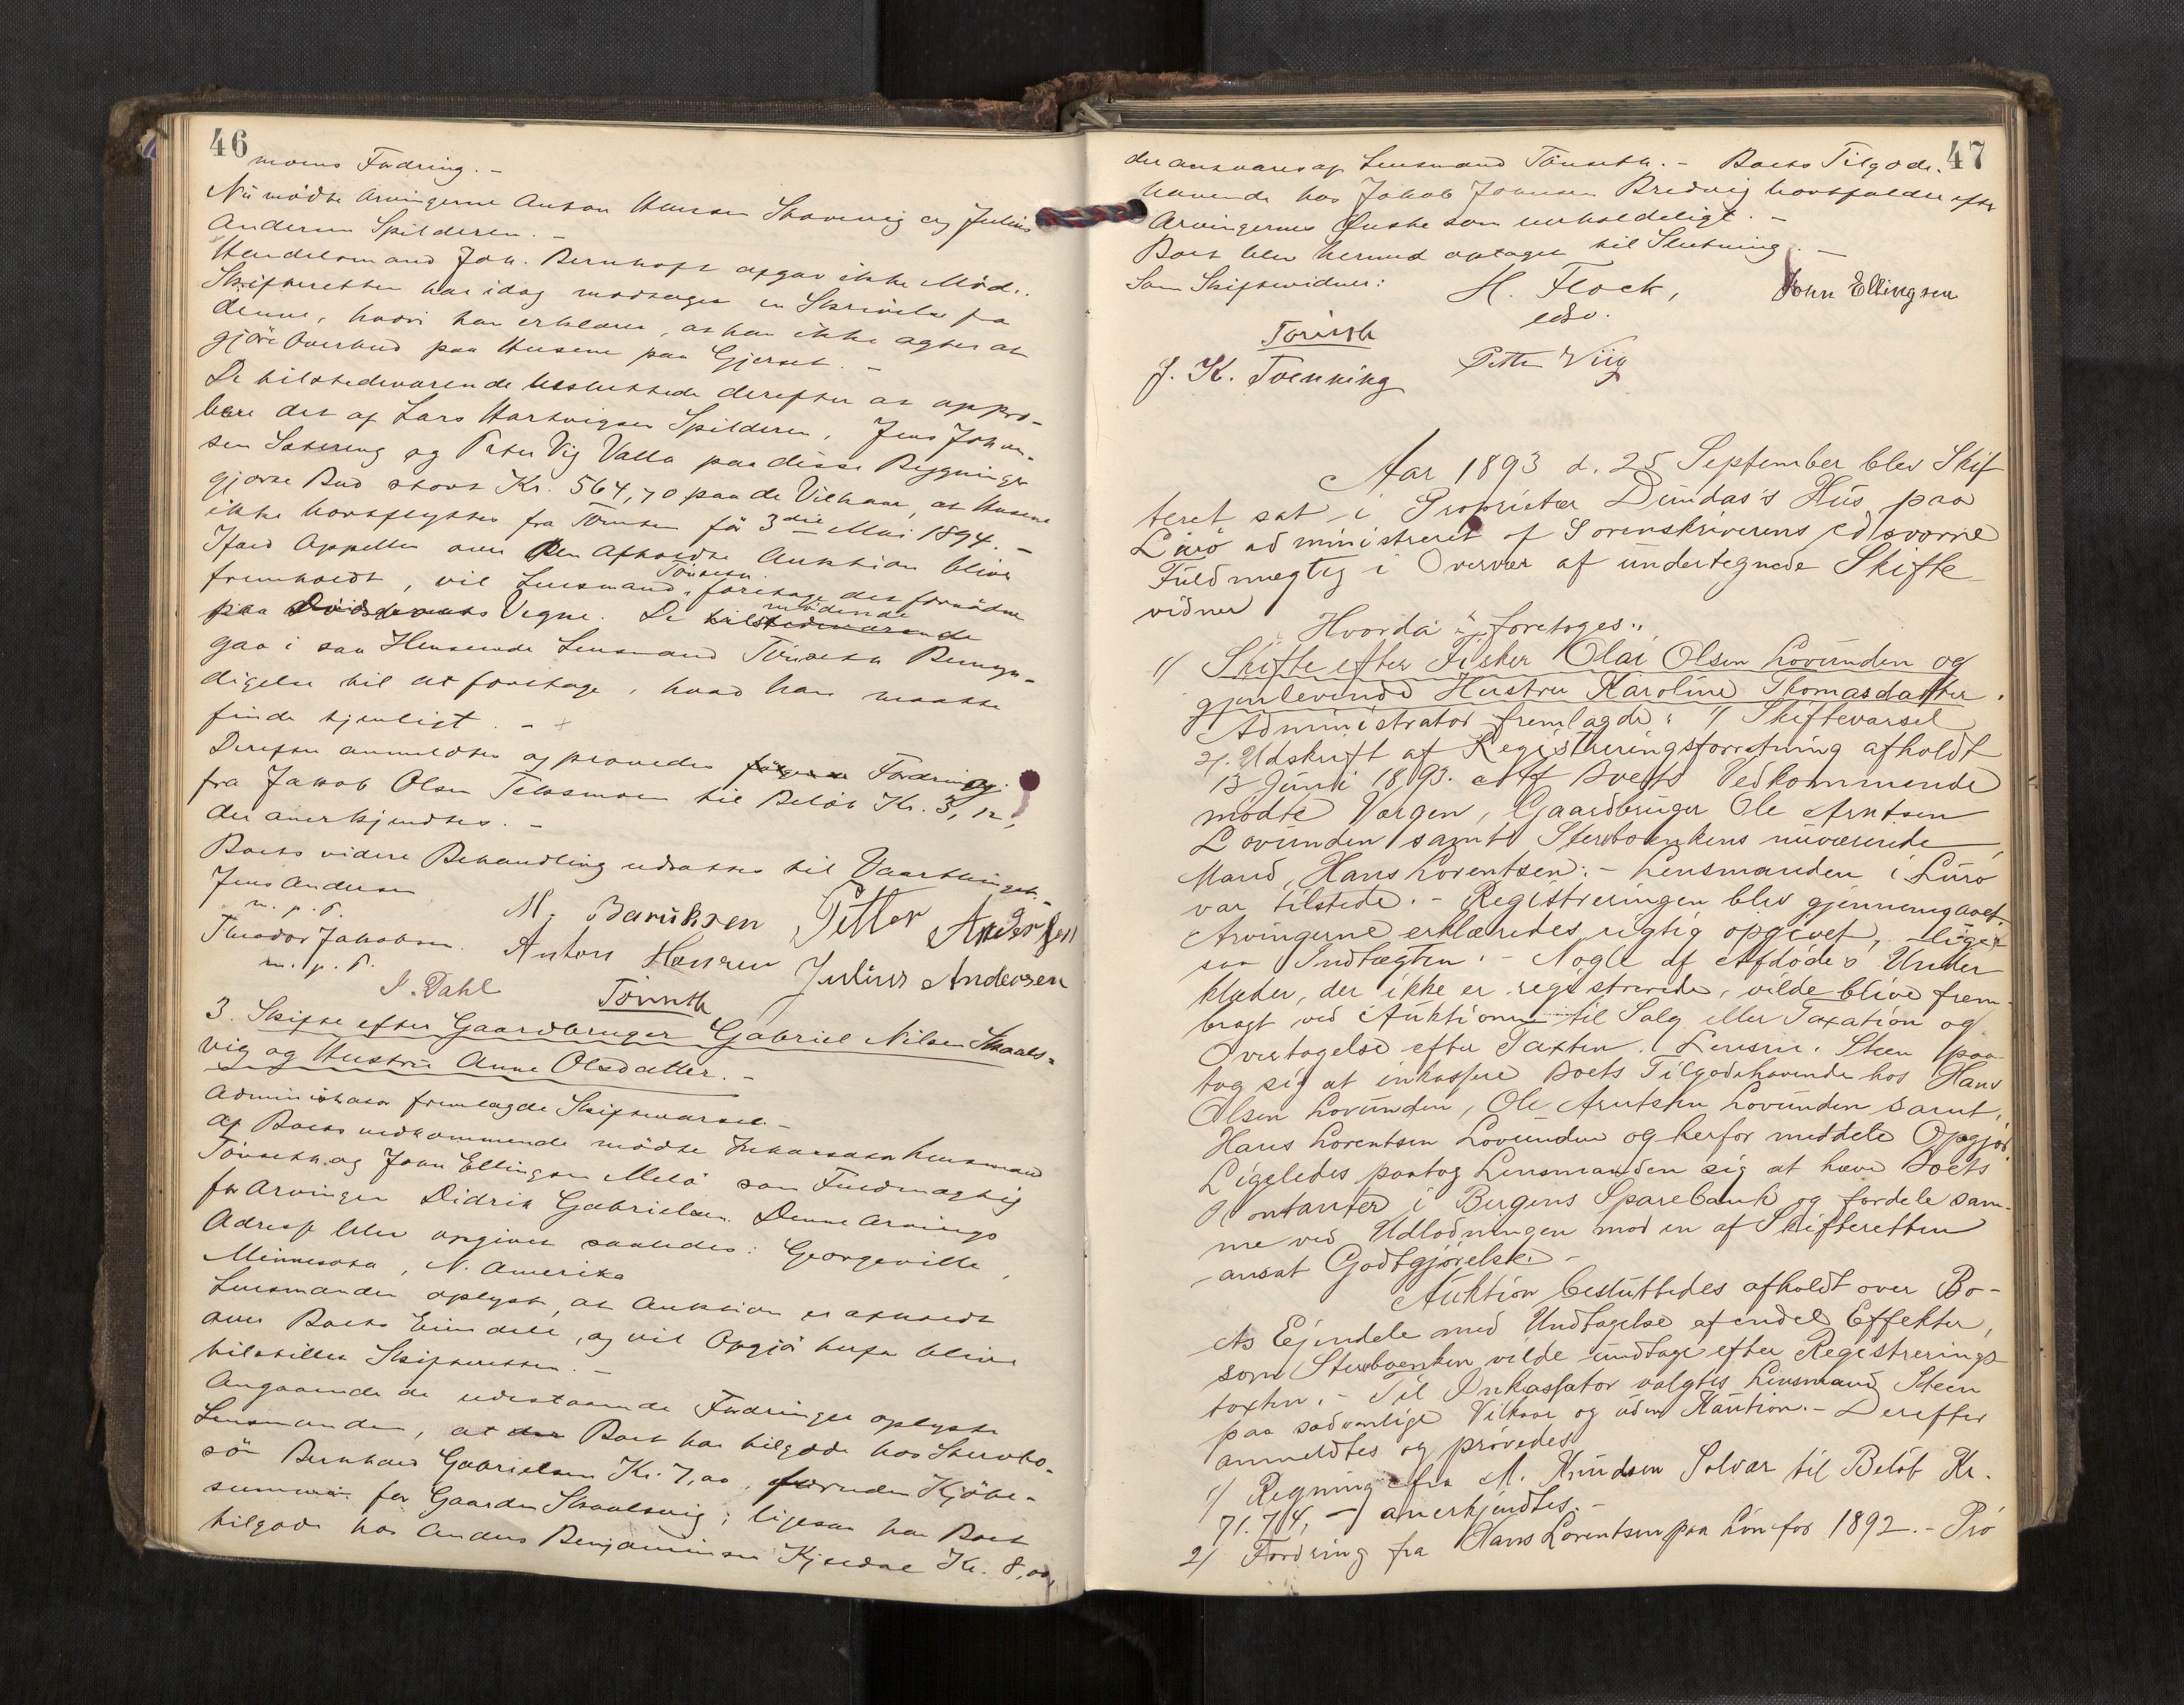 46
moens Fordring. -
Nu mödte Arvingerne Anton Hansen Skarvvig og Julius
Andersen Spilderen. -
Handelsmand Joh. Bernhoft afgav ikke Möde.
Skifteretten har idag modtaget en Skrivelse fra
denne, hvori han erklærer, at han ikke agter at
gjöre Overbud paa Husene paa Gjerset. -
De tilstedeværende besluttede derefter at appro-
bere det af Lars Hartvigsen Spilderen, Jens Johan-
sen Sætereng og Peter Vig Valla paa disse Bygninger
gjorte Bud stort Kr. 564,70 paa de Vilkaar, at Husene
ikke bortflyttes fra Tomten för 3die Mai 1894. -
Ifald Appellen over den afholdte Auktion bliver
fremholdt, vil Lensmand Tönseth foretage det fornödne
paa Dödsboets Vegne. De tilstedeværende mödende
gav i saa Henseende Lensmand Tönseth Bemyn-
digelse til at foretage, hvad han maatte
finde tjenligt. -
Derefter anmeldtes og prövedes følgende Fordring
fra Jakob Olsen Telnsmoen til Belöb Kr. 3,12,
der anerkjendtes. -
Boets videre Behandling udsattes til Vaarthinget. -
Jens Andersen
m. p. P.
M. Baruksen Petter Andersen
Theodor Jakobsen.
m. p. P.
Anton Hansen Julius Andersen
I. Dahl Tönseth
3. Skifte efter Gaardbruger Gabriel Nilsen Skaals-
vig og Hustru Anne Olsdatter. -
Administrator fremlagde Skiftevarsel. -
Af Boets vedkommende mödte Inkassator Lensmand
Tönseth og John Ellingsen Melö som Fuldmægtig
for Arvingen Didrik Gabrielsen. Denne Arvings
Adresse blev opgivet saaledes: Georgeville,
Minnesota, N. Amerika
Lensmanden oplyste, at Auktion er afholdt
over Boets Eiendele, og vil Opgjör herfor blive
tilstillet Skifteretten. -
Angaaende de udestaaende Fordringer oplyste
Lensmanden, at der Boet har tilgode hos Stervbo-
sön Bernhard Gabrielsen Kr. 7,00, foruden Kjöbe-
summen for Gaarden Skaalsvig; ligesaa har Boet
tilgode hos Anders Benjaminsen Kjeldal Kr. 8,00,
47
der ansvares af Lensmand Tönseth. - Boets Tilgode-
havende hos Jakob Johansen Bredvig bortfalder efter
Arvingernes Ønske som uerholdeligt. -
Boet blev hermed optaget til Slutning. -
Som Skiftevidner: H. Flock, John Ellingsen
edsv.
Tönseth
J. K. Toenning Petter Viig
Aar 1893 d. 25 September blev Skif
teret sat i Proprietær Dundas's Hus paa
Lurö administreret af Sorenskriverens edsvorne
Fuldmægtig i Overvær af undertegnede Skifte
vidner
Hvorda foretoges:
1/ Skifte efter Fisker Olai Olsen Lovunden og
gjenlevende Hustru Karoline Thomasdatter.
Administrator fremlagde: 1/ Skiftevarsel
2/. Udskrift af Registreringsforretning afholdt
13 Juni 1893. Af Boets Vedkommende
mödte Værgen, Gaardbruger Ole Arntsen
Lovunden samt Stervboenkens nuværende
Mand, Hans Lorentsen. - Lensmanden i Lurö
var tilstede. - Registreringen blev gjennemgaaet.
Arvingerne erklæredes rigtig opgivet, lige
saa Indtægten. - Nogle af Afdödes Under
klæder, der ikke er registrerede, vilde blive frem-
bragt ved Auktionen til Salg eller Taxation og
Overtagelse efter Taxten. Lensm. Steen paa-
tog sig at inkassere Boets Tilgodehavende hos Hans
Olsen Lovunden, Ole Arntsen Lovunden samt
Hans Lorentsen Lovunden og herfor meddele Opgjör.
Ligeledes paatog Lensmanden sig at hæve Boets
Kontanter i Bergens Sparebank og fordele sam-
me ved Udlodningen mod en af Skifteretten
ansat Godtgjörelse. -
Auktion besluttedes afholdt over Bo-
ets Ejendele med Undtagelse af endel Effekter,
som Stervboenken vilde undtage efter Registrerings-
taxten. - Til Inkassator valgtes Lensmand Steen
paa sædvanlige Vilkaar og uden Kaution. - Derefter
anmeldtes og prövedes
1/ Regning fra M. Knudsen Solvær til Belöb Kr.
71.74, - anerkjendtes. -
2/ Fordring fra Hans Lorentsen paa Lön for 1892. - Prö